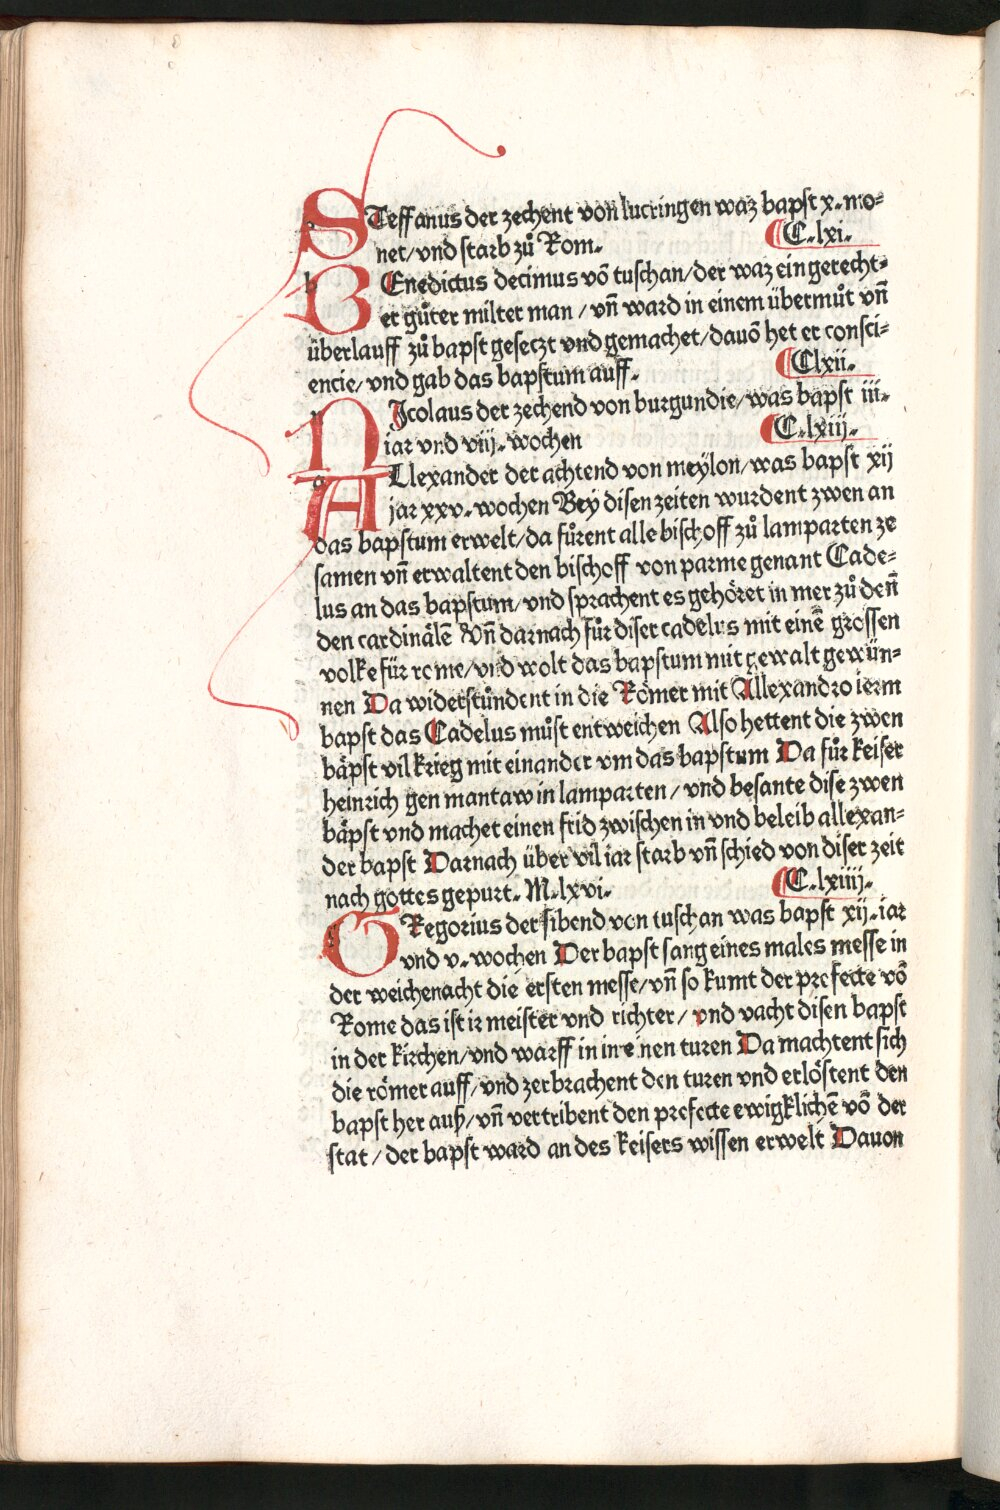 STeffanus der zechent von lucringen waz bapst x. mo-
net/vnd starb zů Rom. C.lxi.
BEnedictus decimus võ tuschan/der waz ein gerecht-
er gůter milter man/vñ ward in einem übermůt vñ
überlauff zů bapst geseczt vnd gemachet/dauõ het er consci-
encie/vnd gab das bapstum auff. Clxii.
NIcolaus der zechend von burgundie/was bapst iii.
iar vnd viij. wochen C.lxiii.
ALlexander der achtend von meylon/was bapst xij
jar xxv. wochen Bey disen zeiten wurdent zwen an
das bapstum erwelt/da fůrent alle bischoff zů lamparten ze
samen vñ erwaltent den bischoff von parme genant Cade-
lus an das bapstum/vnd sprachent es gehöret in mer zů deñ
den cardinälẽ Vñ darnach fůr diser cadelus mit einẽ grossen
volke für rome/vnd wolt das bapstum mit gewalt gewün-
nen Da widerstůndent in die Römer mit Allexandro ierm
bapst das Cadelus můst entweichen Also hettent die zwen
bäpst vil krieg mit einander vm das bapstum Da fůr keiser
heinrich gen mantaw in lamparten/vnd besante dise zwen
bäpst vnd machet einen frid zwischen in vnd beleib allexan-
der bapst Darnach über vil iar starb vñ schied von diser zeit
nach gottes gepurt. M.lxvi. C.lxiiij.
GRegorius der sibend von tuschan was bapst xij. iar
vnd v. wochen Der bapst sang eines males messe in
der weichenacht die ersten messe/vñ so kumt der prefecte võ
Rome das ist ir meister vnd richter/vnd vacht disen bapst
in der kirchen/vnd warff in in einen turen Da machtent sich
die römer auff/vnd zerbrachent den turen vnd erlöstent den
bapst her auß/vñ vertribent den prefecte ewigklichẽ võ der
stat/der bapst ward an des keisers wissen erwelt Dauon